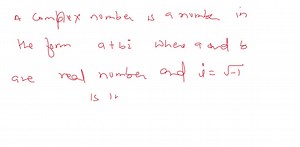 A complex number is a number in
the form a+bi where a and b
are real number and i = √-1
is